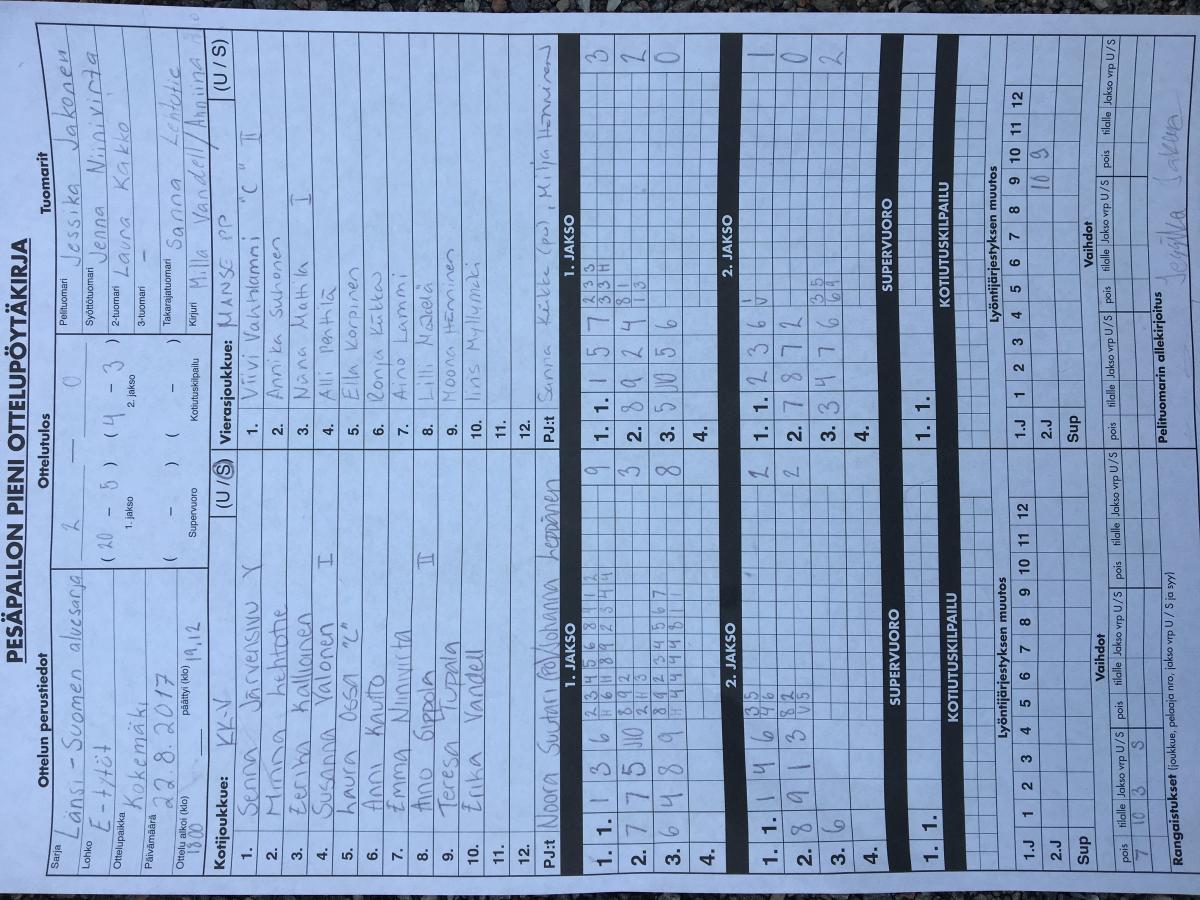 PESÄPALLON PIENI OTTELUPÖYTÄKIRJA
Ottelun perustiedot
Ottelutulos
Tuomarit
Sarja Länsi-Suomen aluesarja
Lohko E-tytöt
Ottelupaikka Kokemäki
Päivämäärä 22.8.2017
Ottelu alkoi (klo) 18.00 päättyi (klo) 19.12
2 — 0
( 20 - 5 ) ( 4 - 3 )
1. jakso 2. jakso
( - ) ( - )
Supervuoro Kotiutuskilpailu
Pelituomari Jessika Jakonen
Syöttötuomari Jenna Niinivirta
2-tuomari Laura Kakko
3-tuomari –
Takarajatuomari Sanna Lehtotie
Kirjuri Milla Vandell/Anniina
Kotijoukkue: KK-V (U / S)
1. Senna Järvensivu Y
2. Minna Lehtotie
3. Eerika Kallainen
4. Susanna Valonen I
5. Laura Ossa "C"
6. Anni Kauto
7. Emma Niinivirta
8. Aino Sippola II
9. Teresa Tuupala
10. Erika Vandell
11.
12.
PJ:t Noora Suutari (PJ)/Johanna Leppänen
Vierasjoukkue: MANSE PP (U / S)
1. Viivi Vahtolammi "C" II
2. Annika Suhonen
3. Niina Mattila I
4. Alli Penttilä
5. Ella Korpinen
6. Ronja Kukkau
7. Aino Lammi
8. Lilli Mäkelä
9. Moona Hänninen
10. Iiris Myllymäki
11.
12.
PJ:t Sanna Kukka (PJ), Milja Hänninen
1. JAKSO
1. 1. 1 3 6 9
2. 7 7 5 J10 3
3. 6 4 8 9 8
4.
1. JAKSO
1. 1. 1 5 7 3
2. 8 9 2 4 2
3. 5 J10 5 6 0
4.
2. JAKSO
1. 1. 1 4 6 2
2. 8 9 1 3 2
3. 6
4.
2. JAKSO
1. 1. 2 3 6 1
2. 7 8 7 2 0
3. 3 4 7 6 2
4.
SUPERVUORO
1. 1.
SUPERVUORO
1. 1.
KOTIUTUSKILPAILU
KOTIUTUSKILPAILU
Lyöntijärjestyksen muutos
1.J 1 2 3 4 5 6 7 8 9 10 11 12
2.J
Sup
Lyöntijärjestyksen muutos
1.J 1 2 3 4 5 6 7 8 9 10 11 12
2.J 10 9
Sup
Vaihdot
pois tilalle Jakso vrp U/S pois tilalle Jakso vrp U/S pois tilalle Jakso vrp U/S pois tilalle Jakso vrp U/S
7 10 3 S
Vaihdot
pois tilalle Jakso vrp U/S pois tilalle Jakso vrp U/S pois tilalle Jakso vrp U/S pois tilalle Jakso vrp U/S
Rangaistukset (joukkue, pelaaja nro, jakso vrp U / S ja syy)
Pelituomarin allekirjoitus